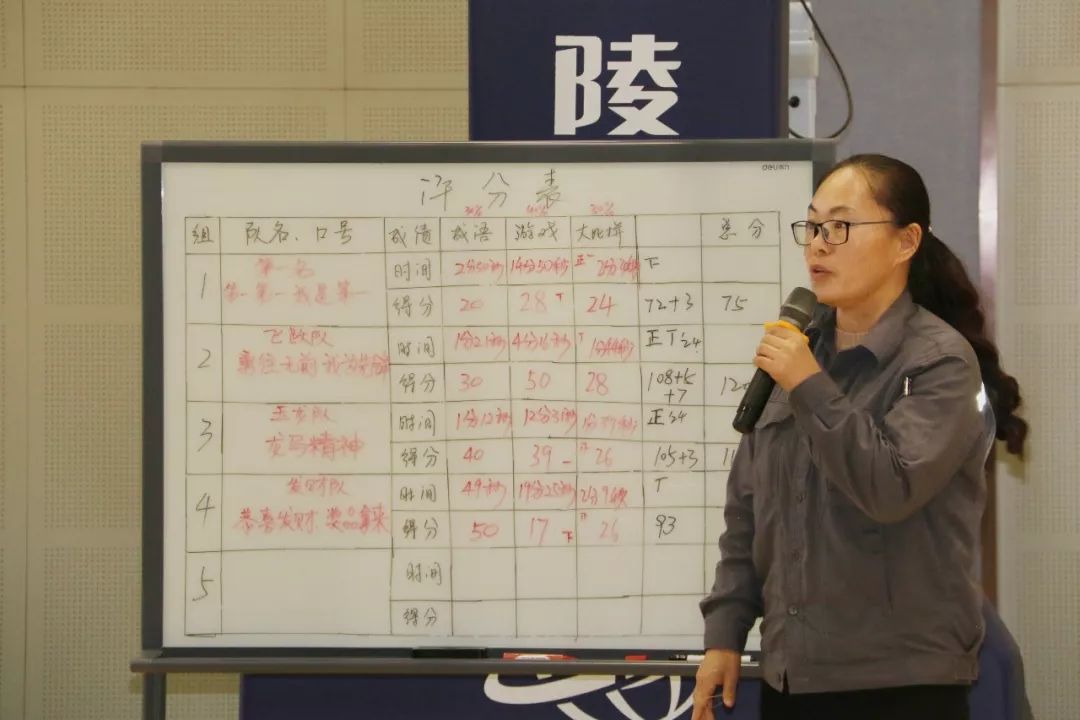 陵
deli
评分表
30% 40% 30%
组 队名、口号 成绩 成语 游戏 大比拼 总分
1 第一名 时间 2分50秒 14分50秒 正一
第一第一我是第一 得分 20 28 24 72+3 75
2 飞跃队 时间 1分21秒 4分16秒 正丅 24
得分 30 50 28 108+5+7
3 玉龙队 时间 1分12秒 12分31秒 正 24
龙马精神 得分 40 39 26 105+3
4 发财队 时间 49秒 19分25秒
恭喜发财 奖品拿来 得分 50 17 26 93
5 时间
得分